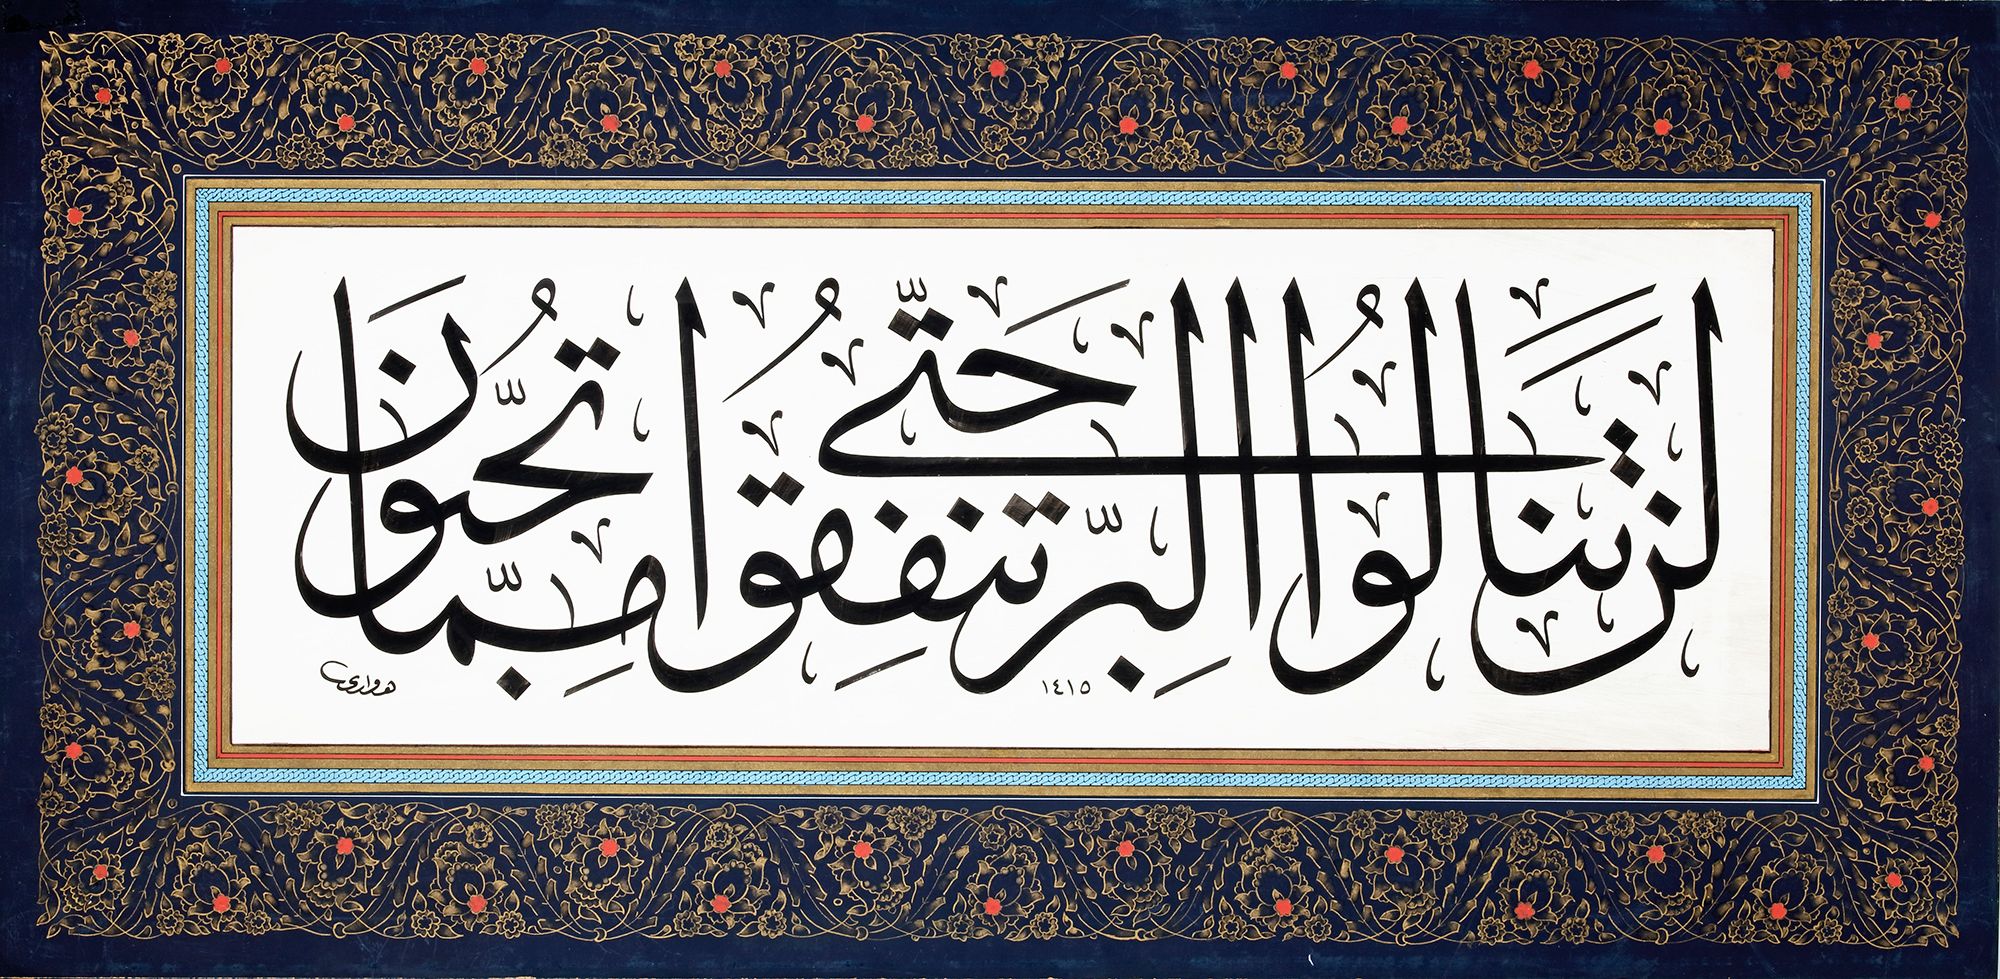 لَنْ تَنَالُوا الْبِرَّ حَتَّى تُنْفِقُوا مِمَّا تُحِبُّونَ
١٤١٥
هواري